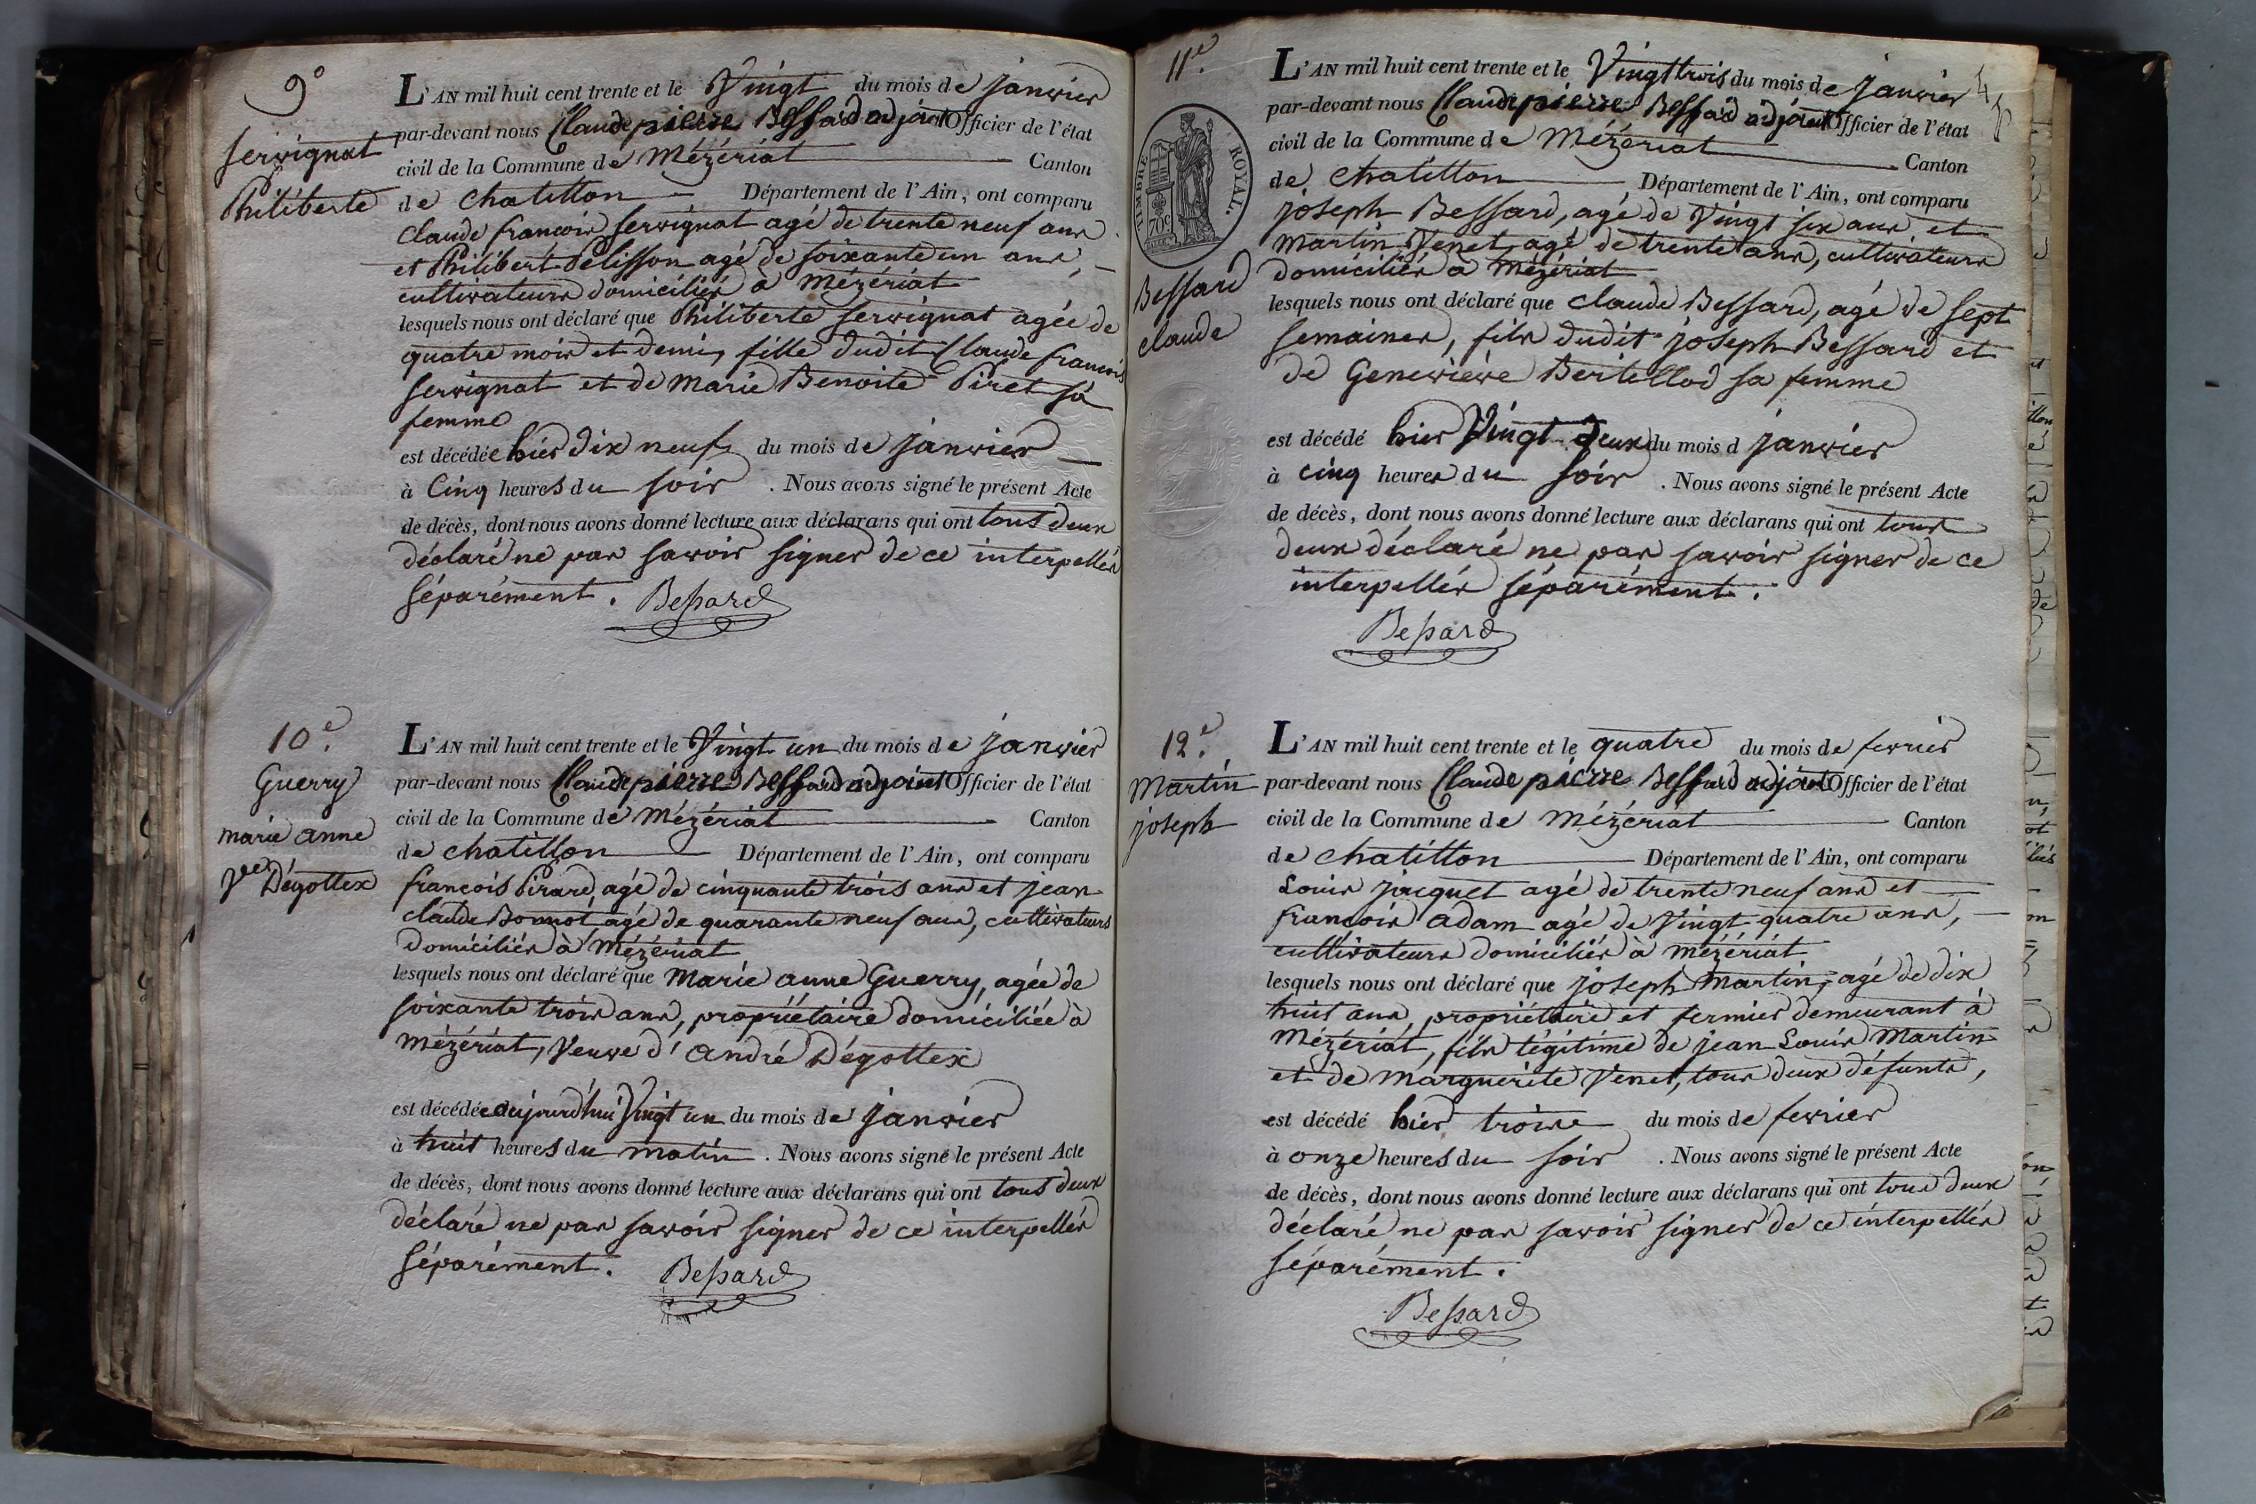 9°
Servignat
Philiberte
L'AN mil huit cent trente et le Vingt du mois de janvier
par-devant nous Claude pierre Bessard adjoint Officier de l'état
civil de la Commune de Mézériat Canton
de chatillon Département de l'Ain, ont comparu
Claude francois Servignat agé de trente neuf ans
et Philibert Pelisson agé de soixante un ans,
cultivateurs domiciliés à Mézériat
lesquels nous ont déclaré que Philiberte Servignat agée de
quatre mois et demi, fille dudit Claude francois
Servignat et de Marie Benoite Piret sa
femme
est décédée hier dix neuf du mois de janvier
à Cinq heures du soir . Nous avons signé le présent Acte
de décès, dont nous avons donné lecture aux déclarans qui ont tous deux
déclaré ne pas savoir signer de ce interpellés
séparément. Bessard
10e.
Guerry
marie anne
vve Dégottex
L'AN mil huit cent trente et le Vingt un du mois de janvier
par-devant nous Claude pierre Bessard adjoint Officier de l'état
civil de la Commune de Mézériat Canton
de chatillon Département de l'Ain, ont comparu
françois Pirard, agé de cinquante trois ans et jean
claude Bonnot, agé de quarante neuf ans, cultivateurs
domiciliés à Mézériat
lesquels nous ont déclaré que Marie anne Guerry, agée de
soixante trois ans, propriétaire domiciliée à
Mézériat, Veuve d'andré Dégottex
est décédée aujourd'hui Vingt un du mois de janvier
à huit heures du matin . Nous avons signé le présent Acte
de décès, dont nous avons donné lecture aux déclarans qui ont tous deux
déclaré ne pas savoir signer de ce interpellés
séparément. Bessard
11e.
TIMBRE ROYAL.
70c
Bessard
claude
L'AN mil huit cent trente et le Vingt trois du mois de janvier
par-devant nous Claude pierre Bessard adjoint Officier de l'état
civil de la Commune de Mézériat Canton
de chatillon Département de l'Ain, ont comparu
joseph Bessard, agé de Vingt six ans et
Martin Venet, agé de trente ans, cultivateurs
domiciliés à Mézériat
lesquels nous ont déclaré que claude Bessard, agé de sept
semaines, fils dudit joseph Bessard et
de Geneviève Bertillod sa femme
est décédé hier Vingt deux du mois d janvier
à cinq heures du soir . Nous avons signé le présent Acte
de décès, dont nous avons donné lecture aux déclarans qui ont tous
deux déclaré ne pas savoir signer de ce
interpellés séparément.
Bessard
12e.
Martin
joseph
L'AN mil huit cent trente et le quatre du mois de fevrier
par-devant nous Claude pierre Bessard adjoint Officier de l'état
civil de la Commune de Mézériat Canton
de chatillon Département de l'Ain, ont comparu
Louis jacquet agé de trente neuf ans et
francois adam agé de Vingt quatre ans,
cultivateurs domiciliés à mézériat
lesquels nous ont déclaré que joseph Martin, agé de dix
huit ans propriétaire et fermier demeurant à
Mézériat, fils légitime de jean Louis Martin
et de Marguerite Venet, tous deux défunts,
est décédé hier trois du mois de fevrier
à onze heures du soir . Nous avons signé le présent Acte
de décès, dont nous avons donné lecture aux déclarans qui ont tous deux
déclaré ne pas savoir signer de ce interpellés
séparément.
Bessard